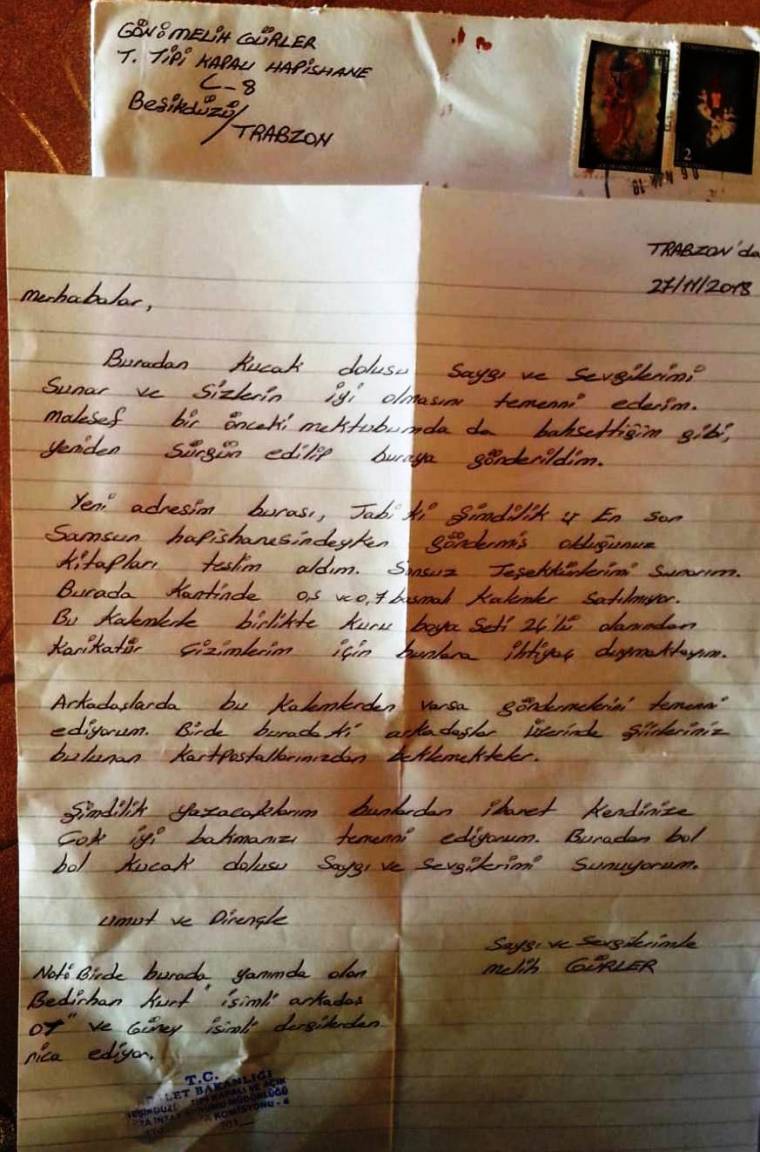 GÖN: MELİH GÜRLER
T. TİPİ KAPALI HAPİSHANE
C-8
Beşikdüzü/
TRABZON
2
TRABZON'da
27/11/2018
merhabalar,
Buradan kucak dolusu saygı ve sevgilerimi
sunar ve sizlerin iyi olmasını temenni ederim.
malesef bir önceki mektubumda da bahsettiğim gibi,
yeniden sürgün edilip buraya gönderildim.
Yeni adresim burası, Tabi ki şimdilik En son
Samsun hapishanesindeyken göndermiş olduğunuz
kitapları teslim aldım. Sonsuz Teşekkürlerimi sunarım.
Burada Kantinde 0,5 ve 0,7 basmalı kalemler satılmıyor.
Bu kalemlerle birlikte kuru boya seti 24'lü olanından
karikatür çizimlerim için bunlara ihtiyaç duymaktayım.
Arkadaşlarda bu kalemlerden varsa göndermelerini temenni
ediyorum. Birde burada ki arkadaşlar üzerinde şiirleriniz
bulunan kartpostallarınızdan beklemekteler.
Şimdilik yazacaklarım bunlardan ibaret kendinize
çok iyi bakmanızı temenni ediyorum. Buradan bol
bol kucak dolusu saygı ve sevgilerimi sunuyorum.
Umut ve Dirençle
Saygı ve Sevgilerimle
Melih GÜRLER
Not: Birde burada yanımda olan
Bedirhan Kurt" isimli arkadaş
ve Güney isimli dergilerden
rica ediyor.
T.C.
ADALET BAKANLIĞI
KOMİSYONU - 4